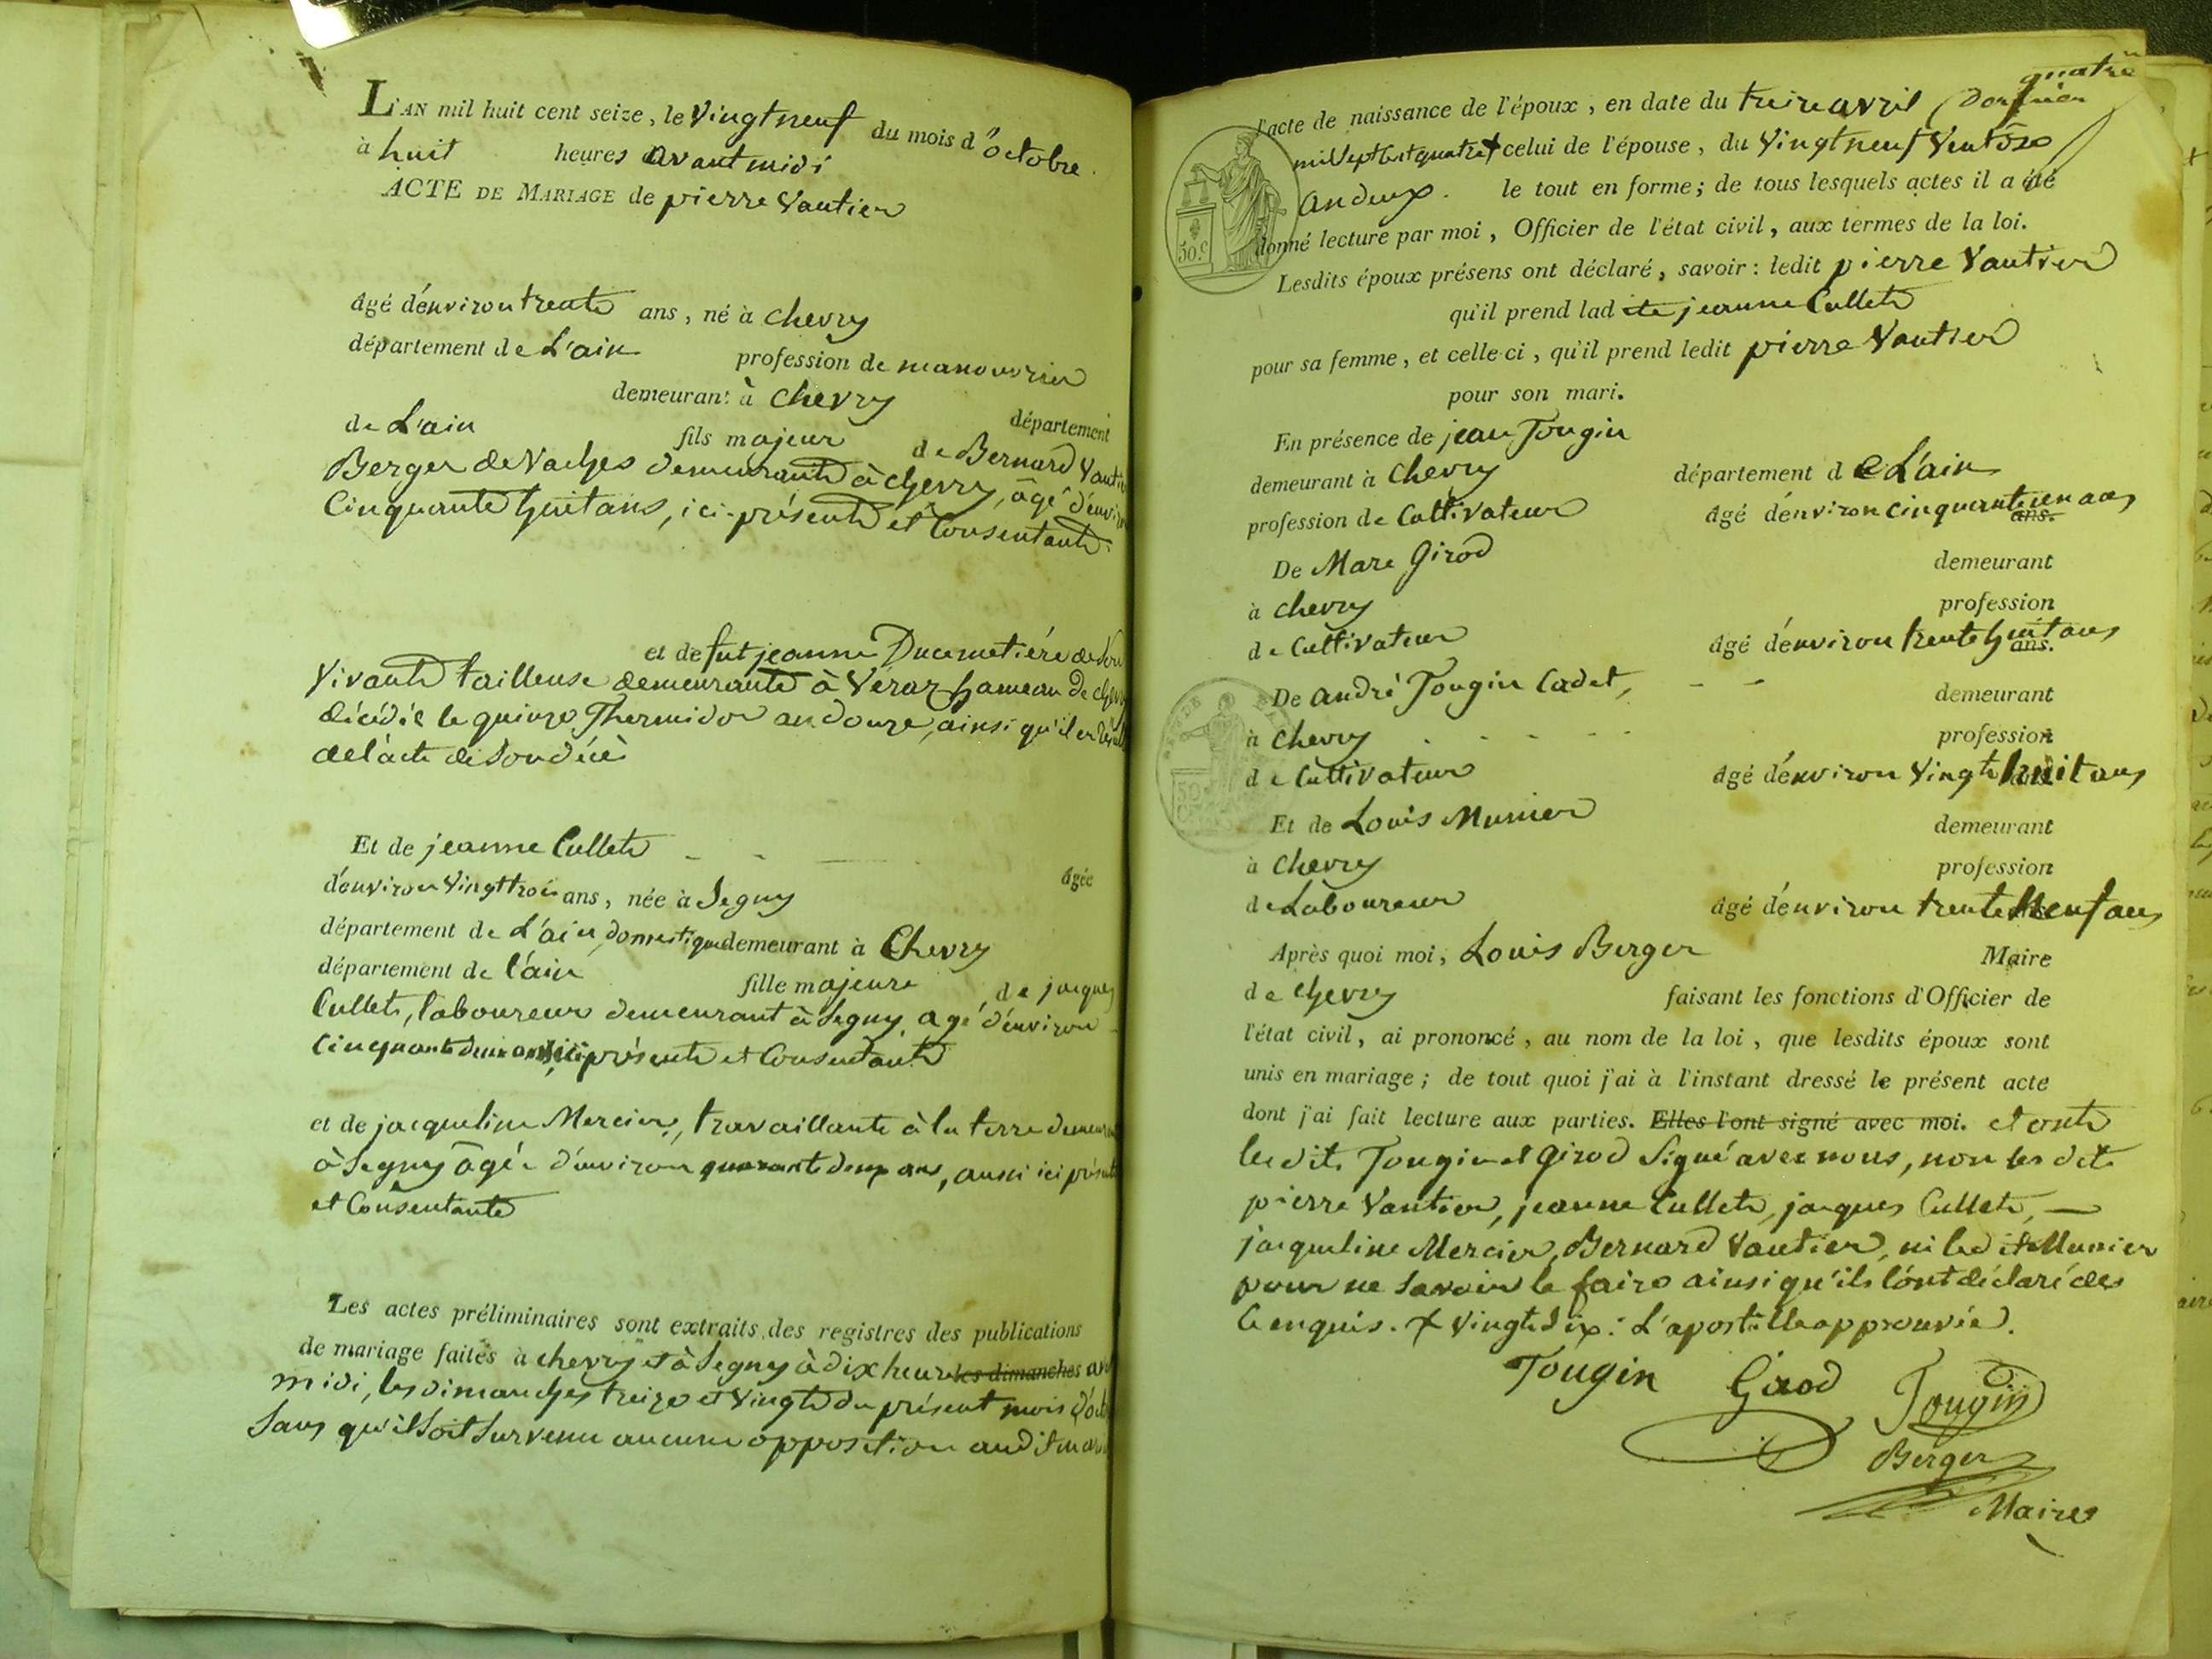 L'AN mil huit cent seize, le Vingt neuf du mois d'octobre.
à huit heures avant midi
ACTE DE MARIAGE de pierre Vautier
âgé d'environ trente ans, né à Chevry
département de L'ain profession de manouvrier
demeurant à Chevry département
de L'ain fils majeur de Bernard Vautier
Berger de Vaches demeurant à chevry, âgé d'environ
Cinquante huit ans, ici-présent et Consentant.
et de fut jeanne Ducimetière de Son
Vivante tailleuse demeurante à Veraz hameau de chevry
décédée le quinze Thermidor an douze, ainsi qu'il en résulte
de l'acte de son décè
Et de jeanne Cullet
âgée
d'environ Vingt trois ans, née à Segny
département de L'ain, domestique demeurant à Chevry
département de l'ain fille majeure de jacques
Cullet, laboureur demeurant à Segny, agé d'environ
Cinquante deux ans, ici présent et Consentant
et de jacqueline Mercier, travaillante à la terre demeurant
à Segny âgée d'environ quarante deux ans, aussi ici présente
et Consentante
Les actes préliminaires sont extraits des registres des publications
de mariage faites à chevry et à Segny à dix heures les dimanches avant
midi, les dimanches treize et Vingt du présent mois d'octobre
Sans qu'il soit survenu aucune opposition audit mariage
quatre
l'acte de naissance de l'époux, en date du treize avril
mil sept cent quatre + celui de l'épouse, du Vingt neuf Ventôse
an deux. le tout en forme; de tous lesquels actes il a été
donné lecture par moi, Officier de l'état civil, aux termes de la loi.
50 c
Lesdits époux présens ont déclaré, savoir: ledit pierre Vautier
qu'il prend ladite jeanne Cullet
pour sa femme, et celle-ci, qu'il prend ledit pierre Vautier
pour son mari.
En présence de jean Tougin
demeurant à Chevry département de L'ain
profession de Cultivateur âgé d'environ cinquante un ans
ans.
De Marc Girod demeurant
à Chevry profession
de Cultivateur âgé d'environ trente huit ans
ans.
De andré Tougin Cadet, demeurant
à Chevry profession
de Cultivateur âgé d'environ Vingt huit ans
Et de Louis Munier demeurant
à Chevry profession
de Laboureur âgé d'environ trente Neuf ans
Après quoi moi, Louis Berger Maire
de Chevry faisant les fonctions d'Officier de
l'état civil, ai prononcé, au nom de la loi, que lesdits époux sont
unis en mariage; de tout quoi j'ai à l'instant dressé le présent acte
dont j'ai fait lecture aux parties. Elles l'ont signé avec moi. et ont
les dits Tougin et Girod Signé avec nous, non les dits
pierre Vautier, jeanne Cullet, jacques Cullet, —
jacqueline Mercier, Bernard Vautier, ni led it Munier
pour ne Savoir le faire ainsi qu'ils l'ont déclaré de
Ce enquis. + Vingt Six: L'apostille approuvée.
Tougin Girod Tougin
Berger
Maire